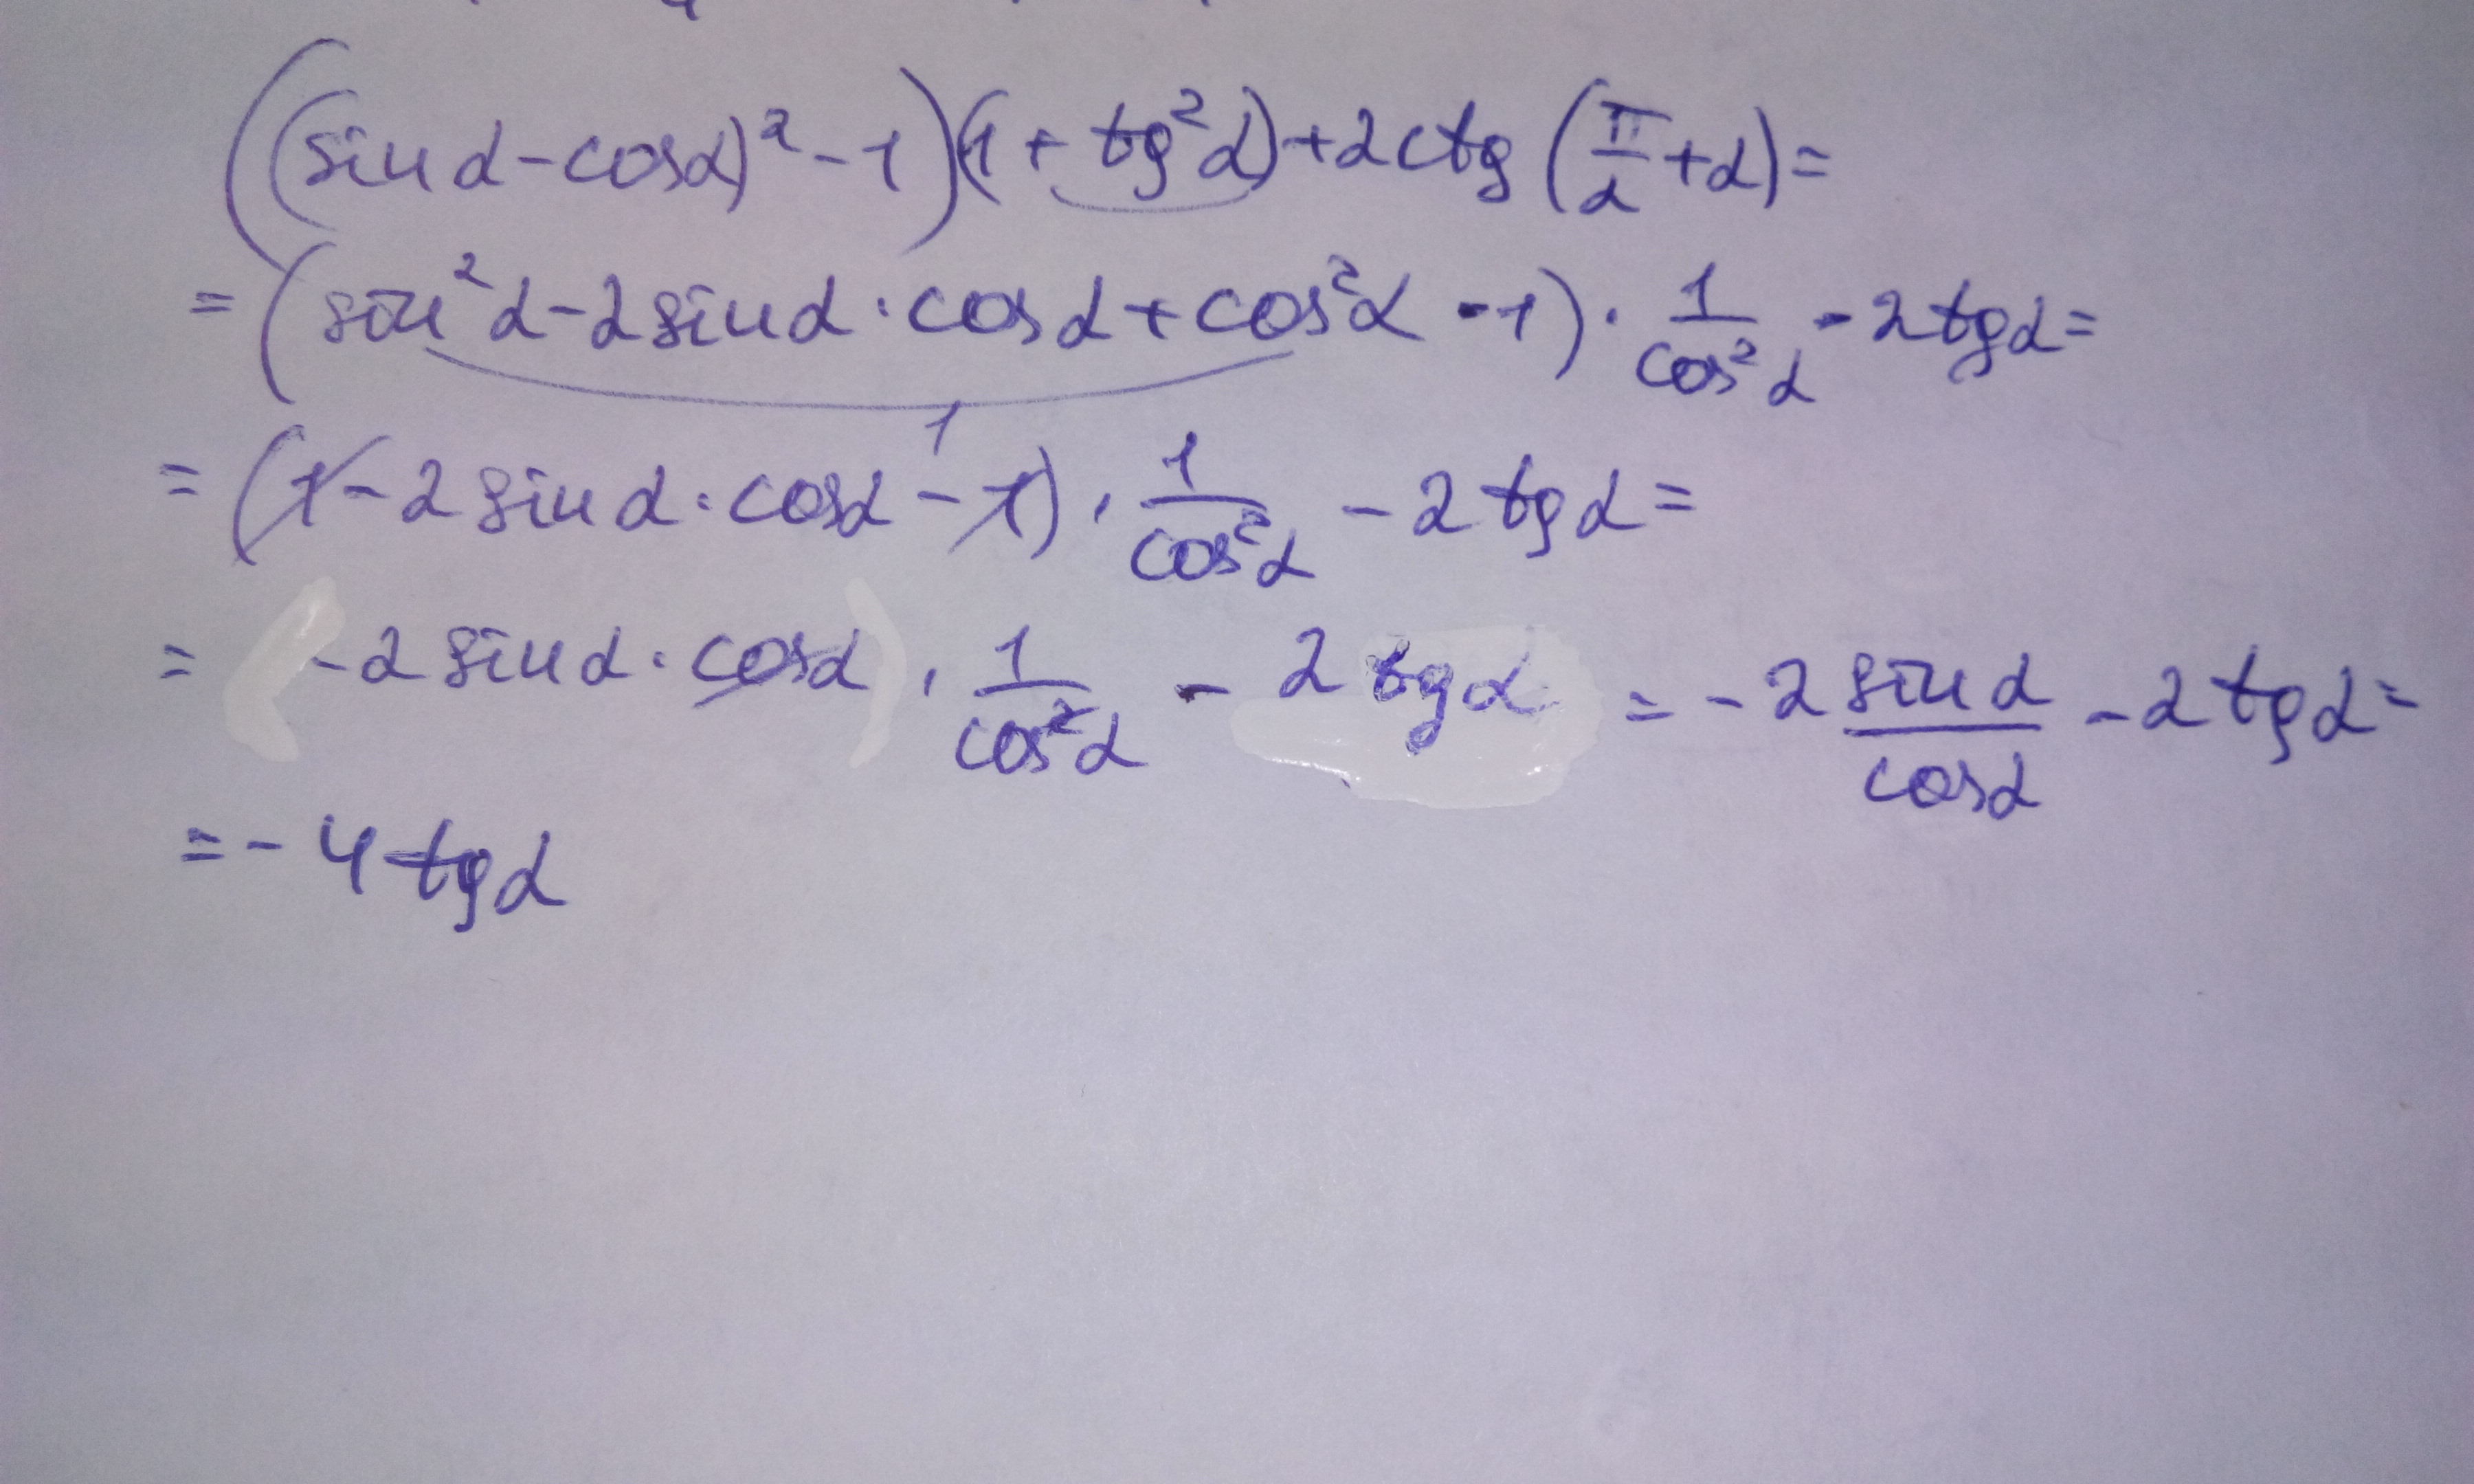 ((sin α - cos α)² - 1)(1 + tg²α) + 2ctg(π/2 + α) =
= (sin²α - 2sin α · cos α + cos²α - 1) · 1/cos²α - 2tg α =
1
= (1 - 2 sin α · cos α - 1) · 1/cos²α - 2 tg α =
= -2 sin α · cos α · 1/cos²α - 2 tg α = -2 sin α/cos α - 2 tg α =
= -4 tg α